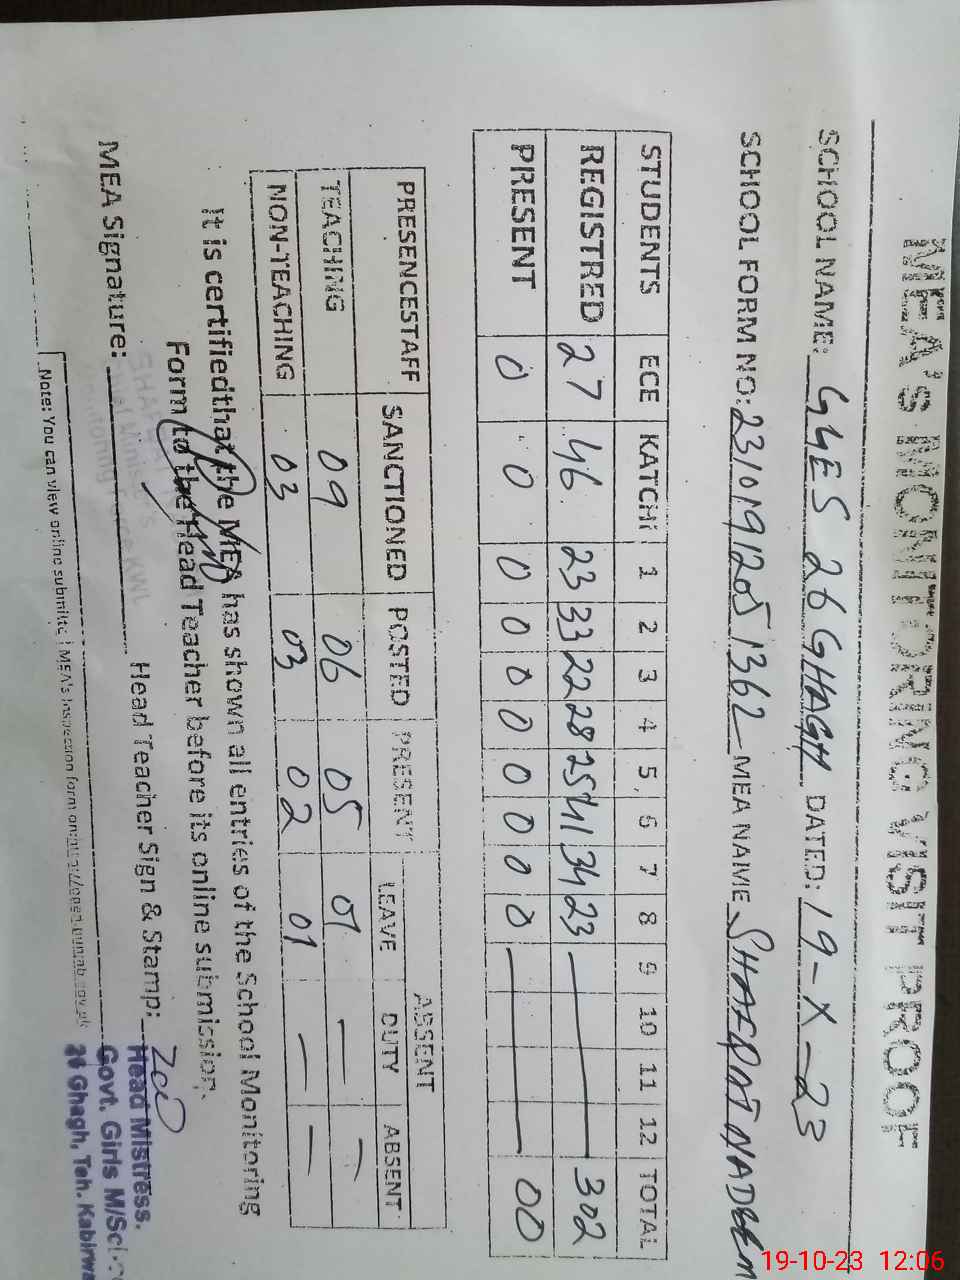 MEA'S MONITORING VISIT PROOF
SCHOOL NAME: GGES 26 GHAGH DATED: 19-X-23
SCHOOL FORM NO: 23101912051362 MEA NAME SHAFQAT NADEEM
STUDENTS ECE KATCHI 1 2 3 4 5 6 7 8 9 10 11 12 TOTAL
REGISTRED 27 46 23 33 22 28 25 41 34 23 — 302
PRESENT 0 0 0 0 0 0 0 0 0 0 — 00
PRESENCESTAFF SANCTIONED POSTED PRESENT ABSENT
LEAVE DUTY ABSENT
TEACHING 09 06 05 01 — —
NON-TEACHING 03 03 02 01 — —
It is certifiedthat the MEA has shown all entries of the School Monitoring
Form to the Head Teacher before its online submission.
MEA Signature: Head Teacher Sign & Stamp:
Head Mistress.
Govt. Girls M/
26 Ghagh, Teh. Kabirwa
Note: You can view online submitted MEA's Inspection form on:
19-10-23 12:06